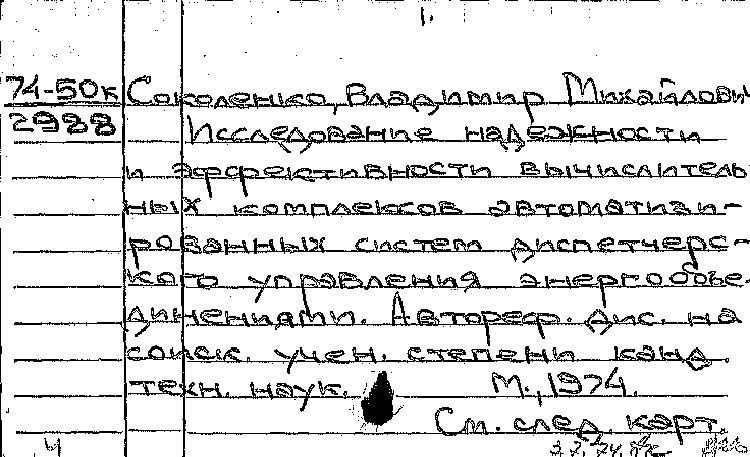 1.
74-50к Соколенко, Владимир Михайлович
2988 Исследование надежности
и эффективности вычислитель
ных комплексов автоматизи-
рованных систем диспетчерс-
кого управления энергообъе-
динениями. Автореф. дис. на
соиск. учен. степени канд.
техн. наук. М., 1974.
См. след. карт.
4